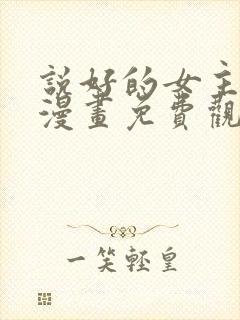 說好的女主
漫畫免費觀
一笑輕皇